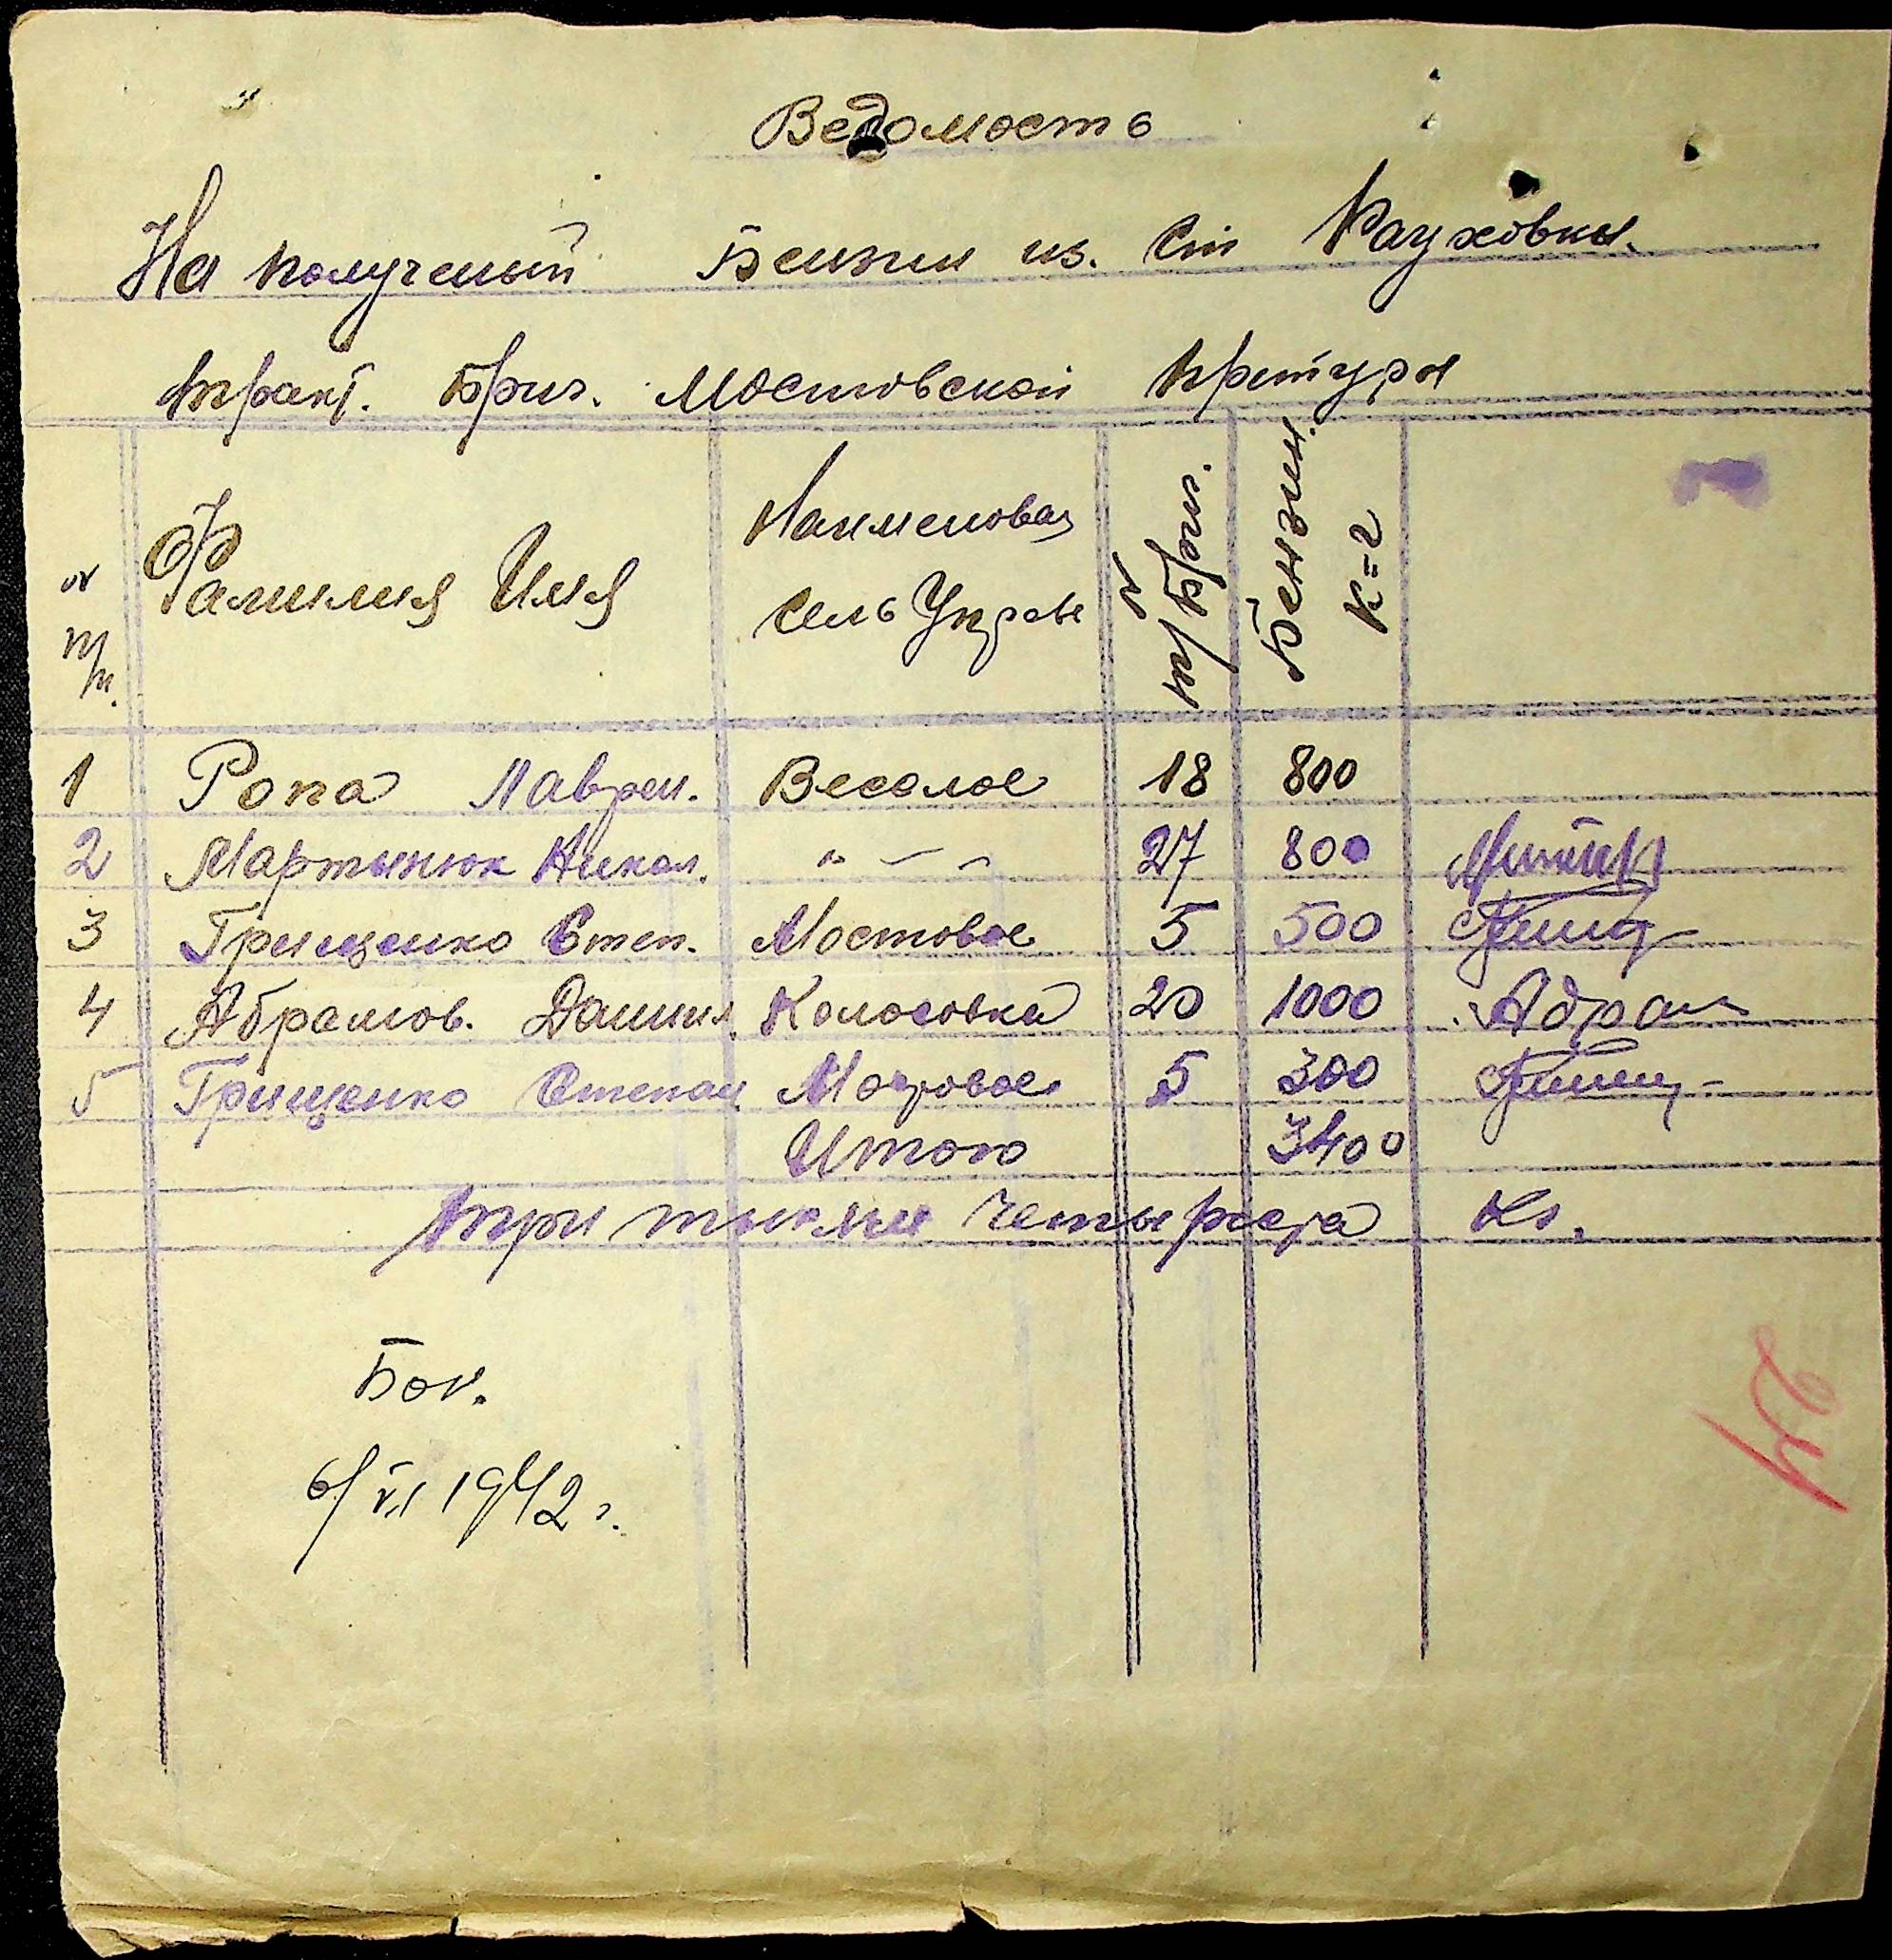 Ведомость
На полученый Бензин из. Ст Раухowки.
тракт. Бриг. Мостовской претуры
№ п/п. Фамилия Имя Наименован Сель Управы № тр/бриг. Бензин. к=г
1 Ропа Лаврен. Веселое 18 800
2 Мартынюк Никол. " — — 27 800
3 Грищенко Степ. Мостовое 5 500 Грищ
4 Абрамов. Даниил. Колосовка 20 1000 Абрам
5 Грищенко Степан Мостовое 5 300 Грищ
Итого 3400
три тысячи четыреста кг.
Бог.
6/VI 1942 г.
24